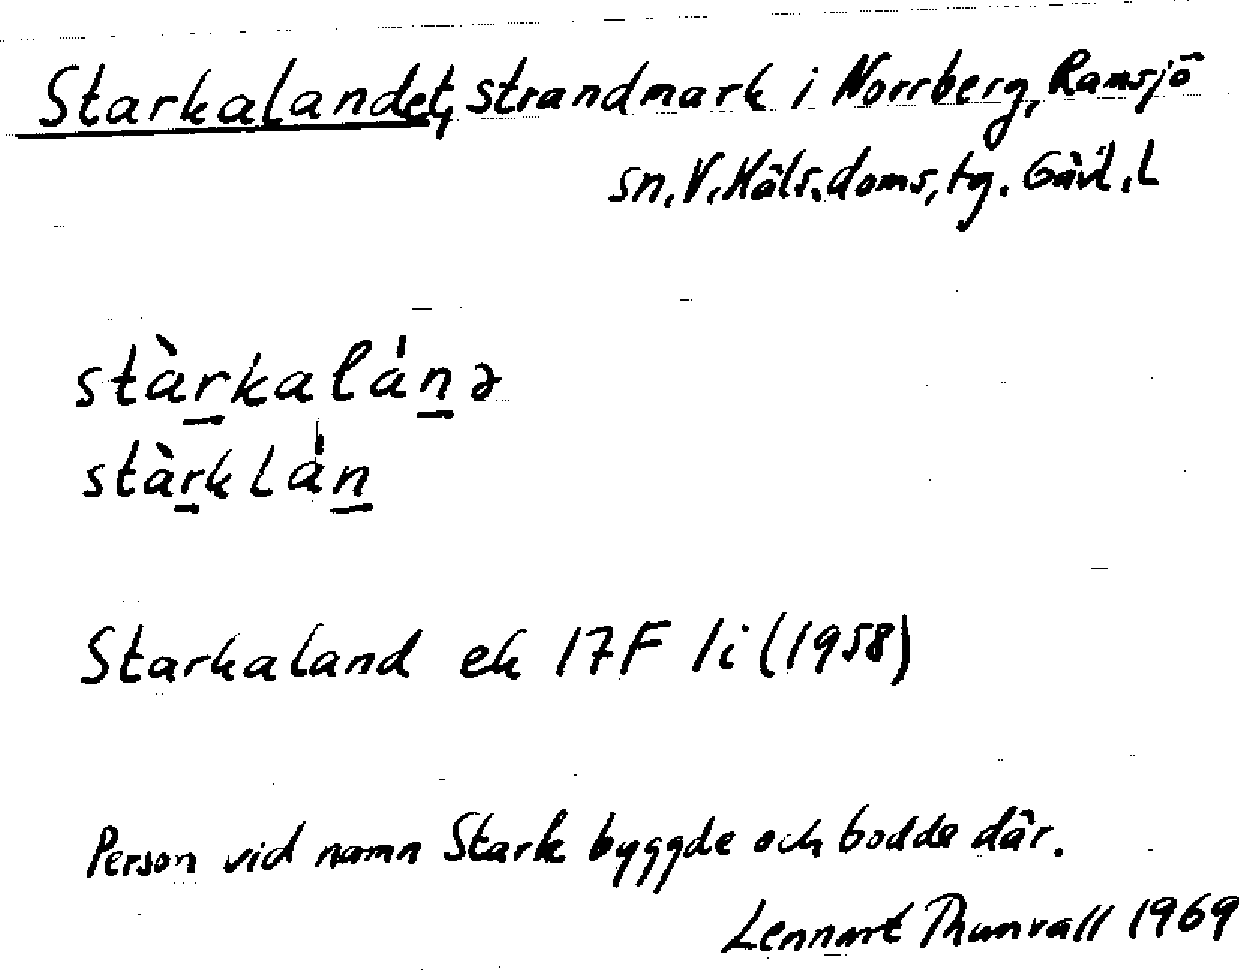 Starkalandet, strandmark i Norrberg, Ramsjö
sn, V. Häls. doms, tg. Gävl. L
stàrkalánə
stàrklán
Starkaland ek 17F 1i (1958)
Person vid namn Stark byggde och bodde där.
Lennart Thunvall 1969